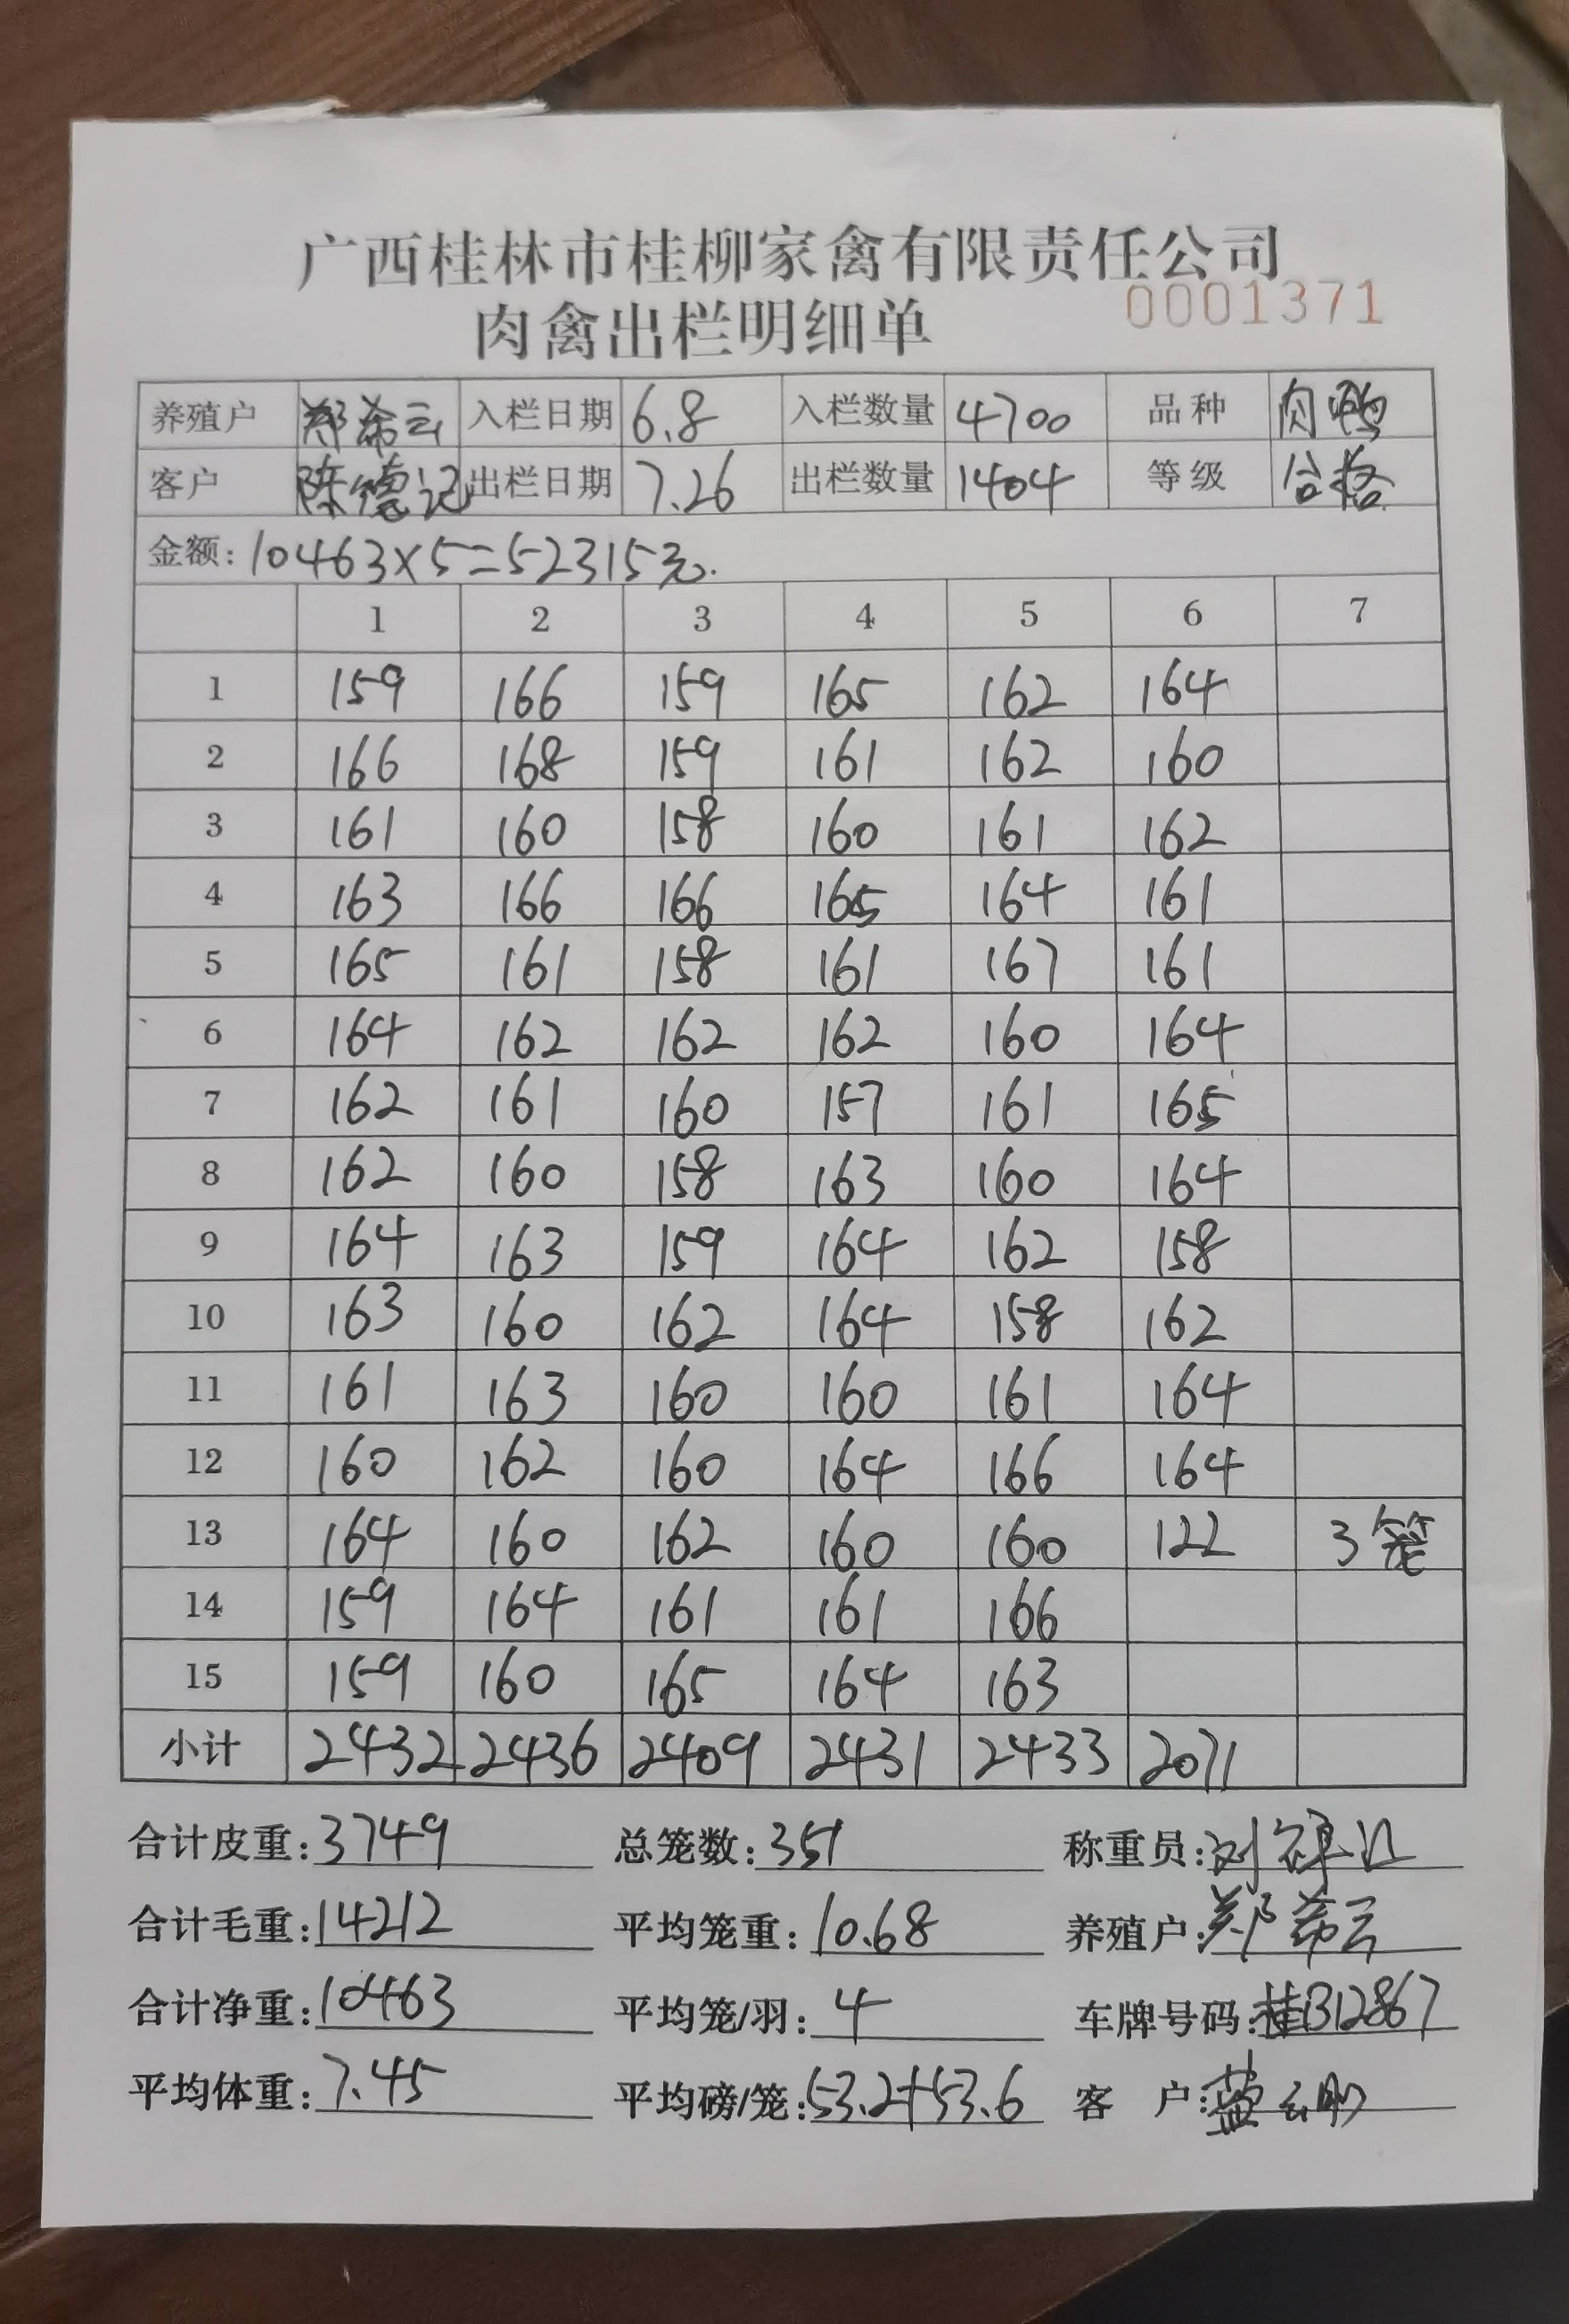 广西桂林市桂柳家禽有限责任公司
0001371
肉禽出栏明细单
养殖户 郑希云 入栏日期 6.8 入栏数量 4700 品种 肉鸭
客户 陈德记 出栏日期 7.26 出栏数量 1404 等级 合格
金额:10463×5=52315元.
1 2 3 4 5 6 7
1 159 166 159 165 162 164
2 166 168 159 161 162 160
3 161 160 158 160 161 162
4 163 166 166 165 164 161
5 165 161 158 161 167 161
6 164 162 162 162 160 164
7 162 161 160 157 161 165
8 162 160 158 163 160 164
9 164 163 159 164 162 158
10 163 160 162 164 158 162
11 161 163 160 160 161 164
12 160 162 160 164 166 164
13 164 160 162 160 160 122 3笼
14 159 164 161 161 166
15 159 160 165 164 163
小计 2432 2436 2409 2431 2433 2071
合计皮重:3749 总笼数:351 称重员:刘
合计毛重:14212 平均笼重:10.68 养殖户:郑希云
合计净重:10463 平均笼/羽:4 车牌号码:桂B12867
平均体重:7.45 平均磅/笼:53.2+53.6 客户:蓝云刚